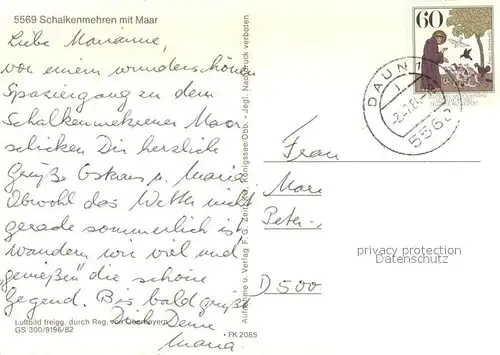 5569 Schalkenmehren mit Maar
Liebe Marianne,
vor einem wunderschönen
Spaziergang zu dem
Schalkenmehrener Maar
schicken Dir herzliche
Grüße Oskar u. Maria
Obwohl das Wetter nicht
gerade sommerlich ist,
wandern wir viel und
"genießen" die schöne
Gegend. Bis bald grüßt
Dich Deine
Maria
Luftbild freigg. durch Reg. von Oberbayern
GS 300/9196/82
• FK 2085
Aufnahme u. Verlag F. G. Zeitz KG., Königssee/Obb. - Jegl. Nachdruck verboten
60
DAUN 1
5568
Frau
Mari
Peter-
D 500
privacy protection
Datenschutz